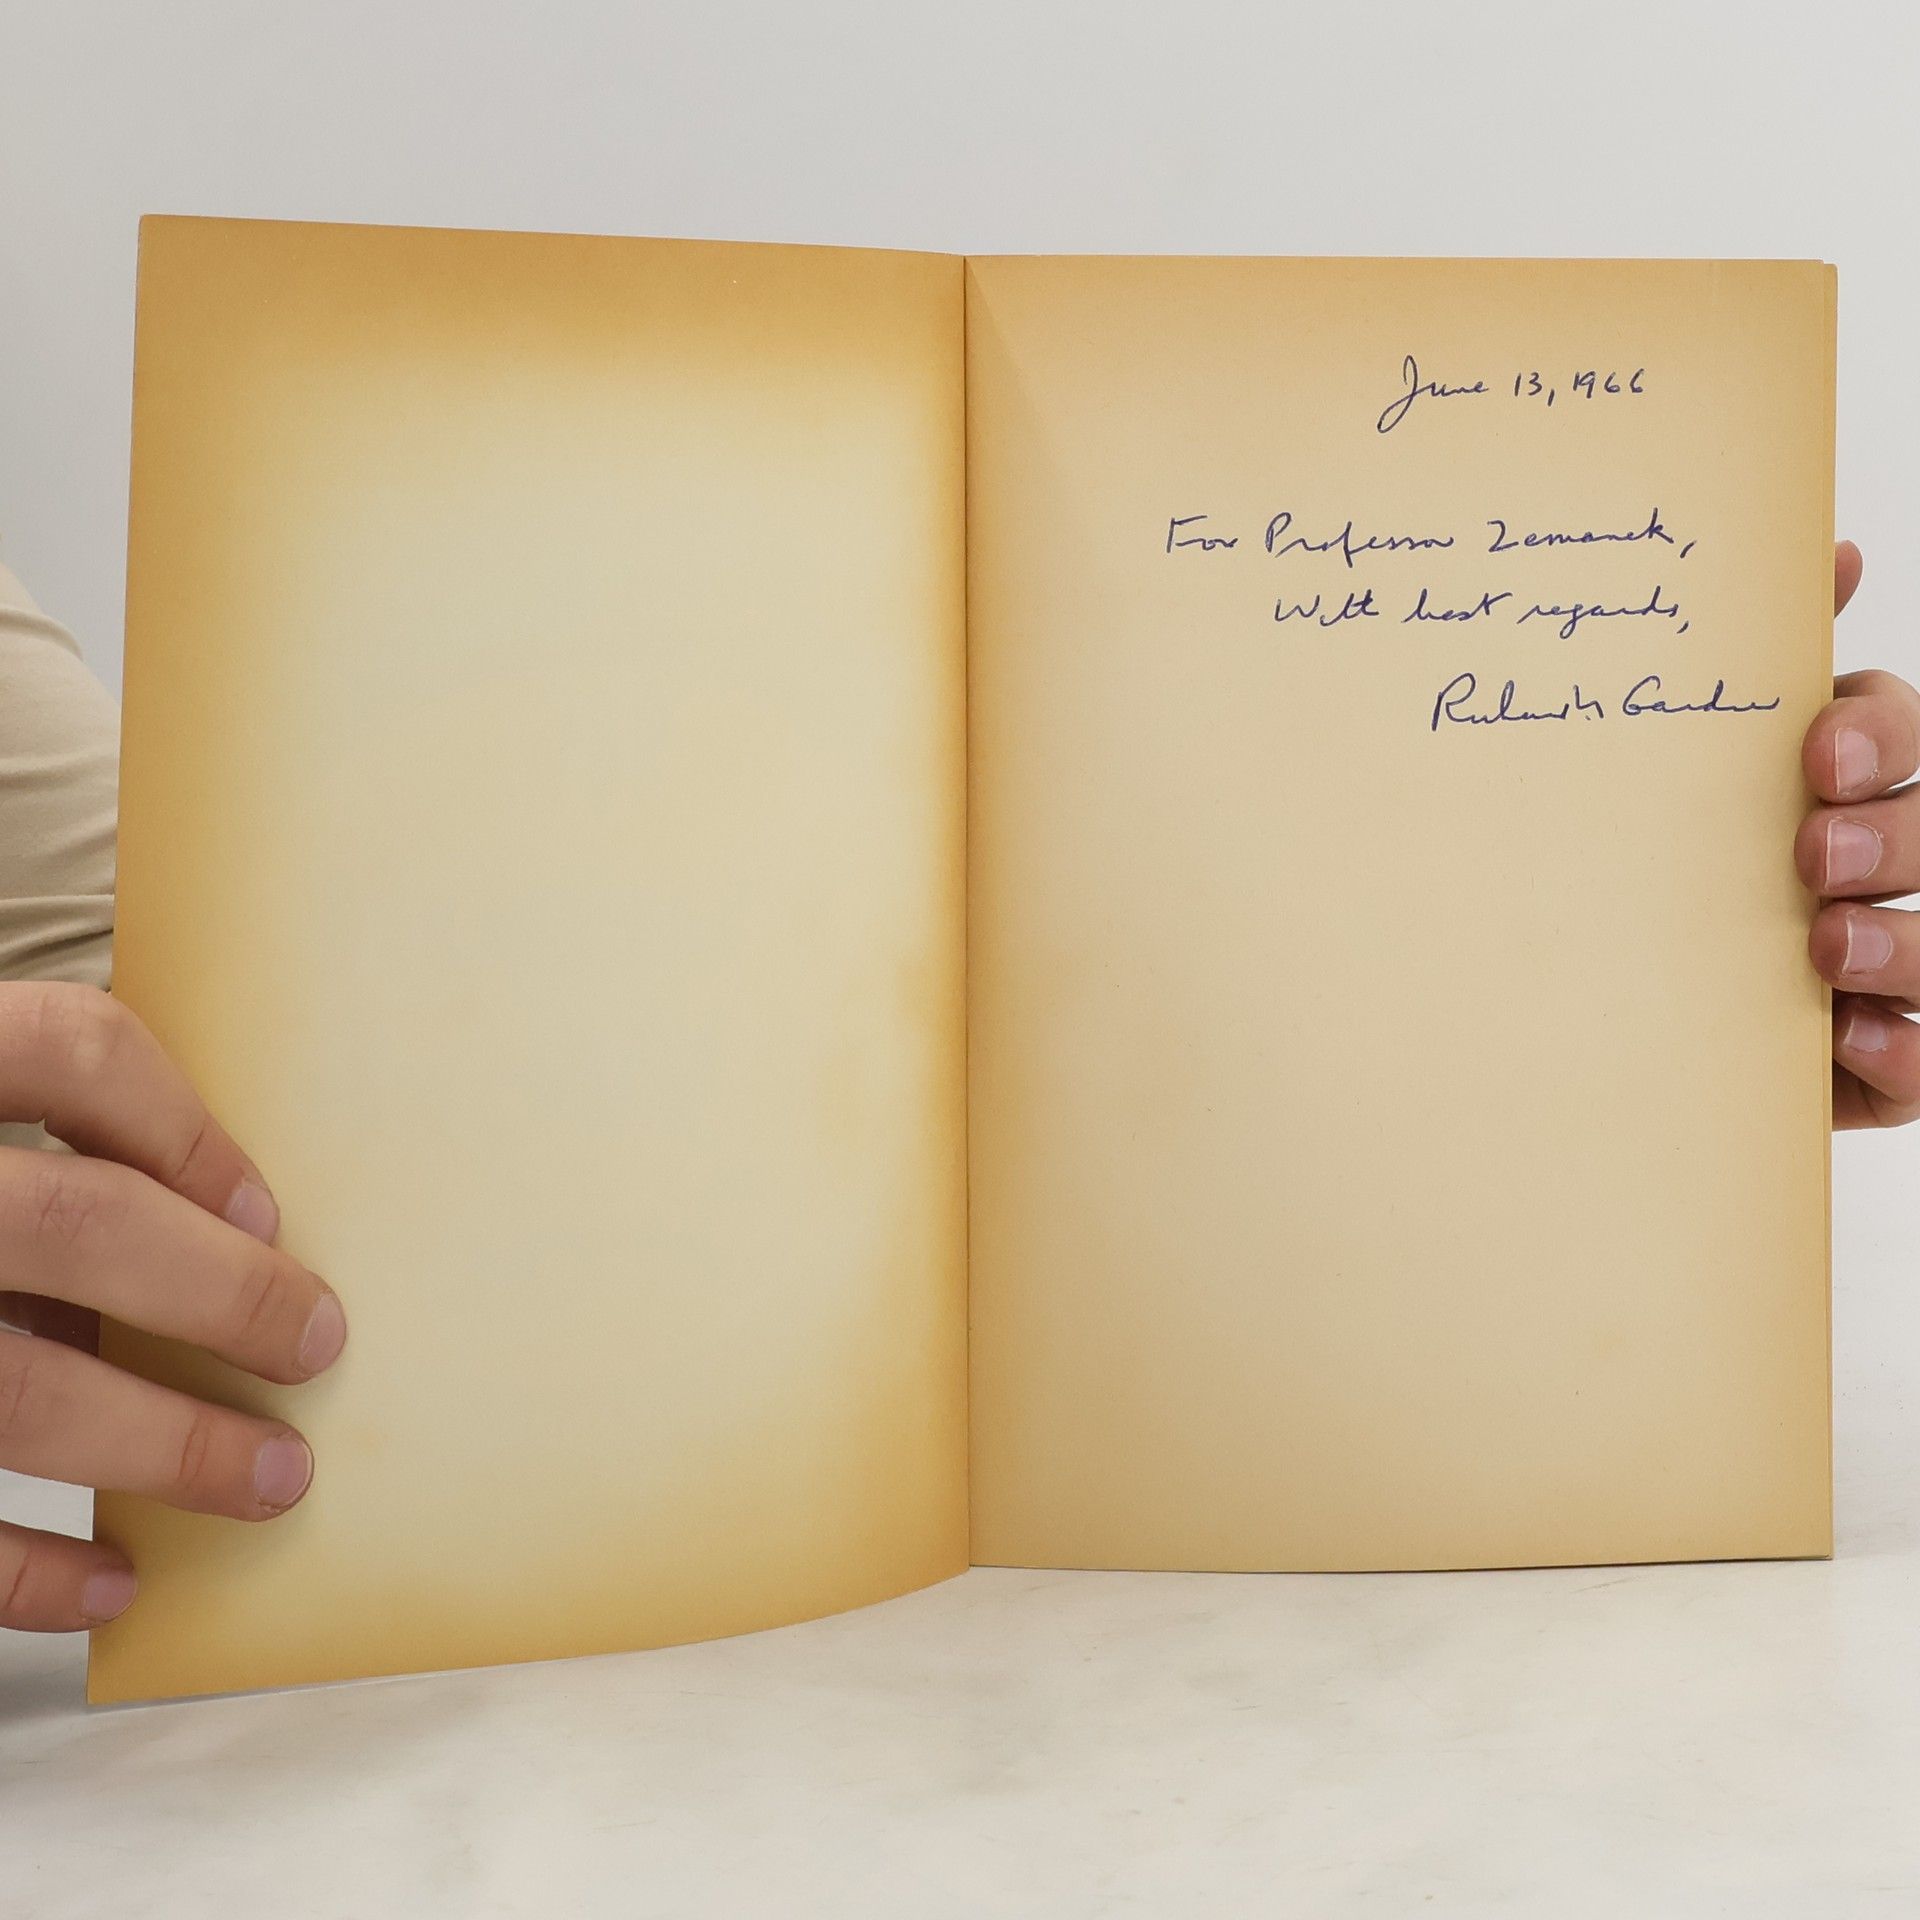 June 13, 1966
For Professor Zemanek,
With best regards,
Richard N. Gardner